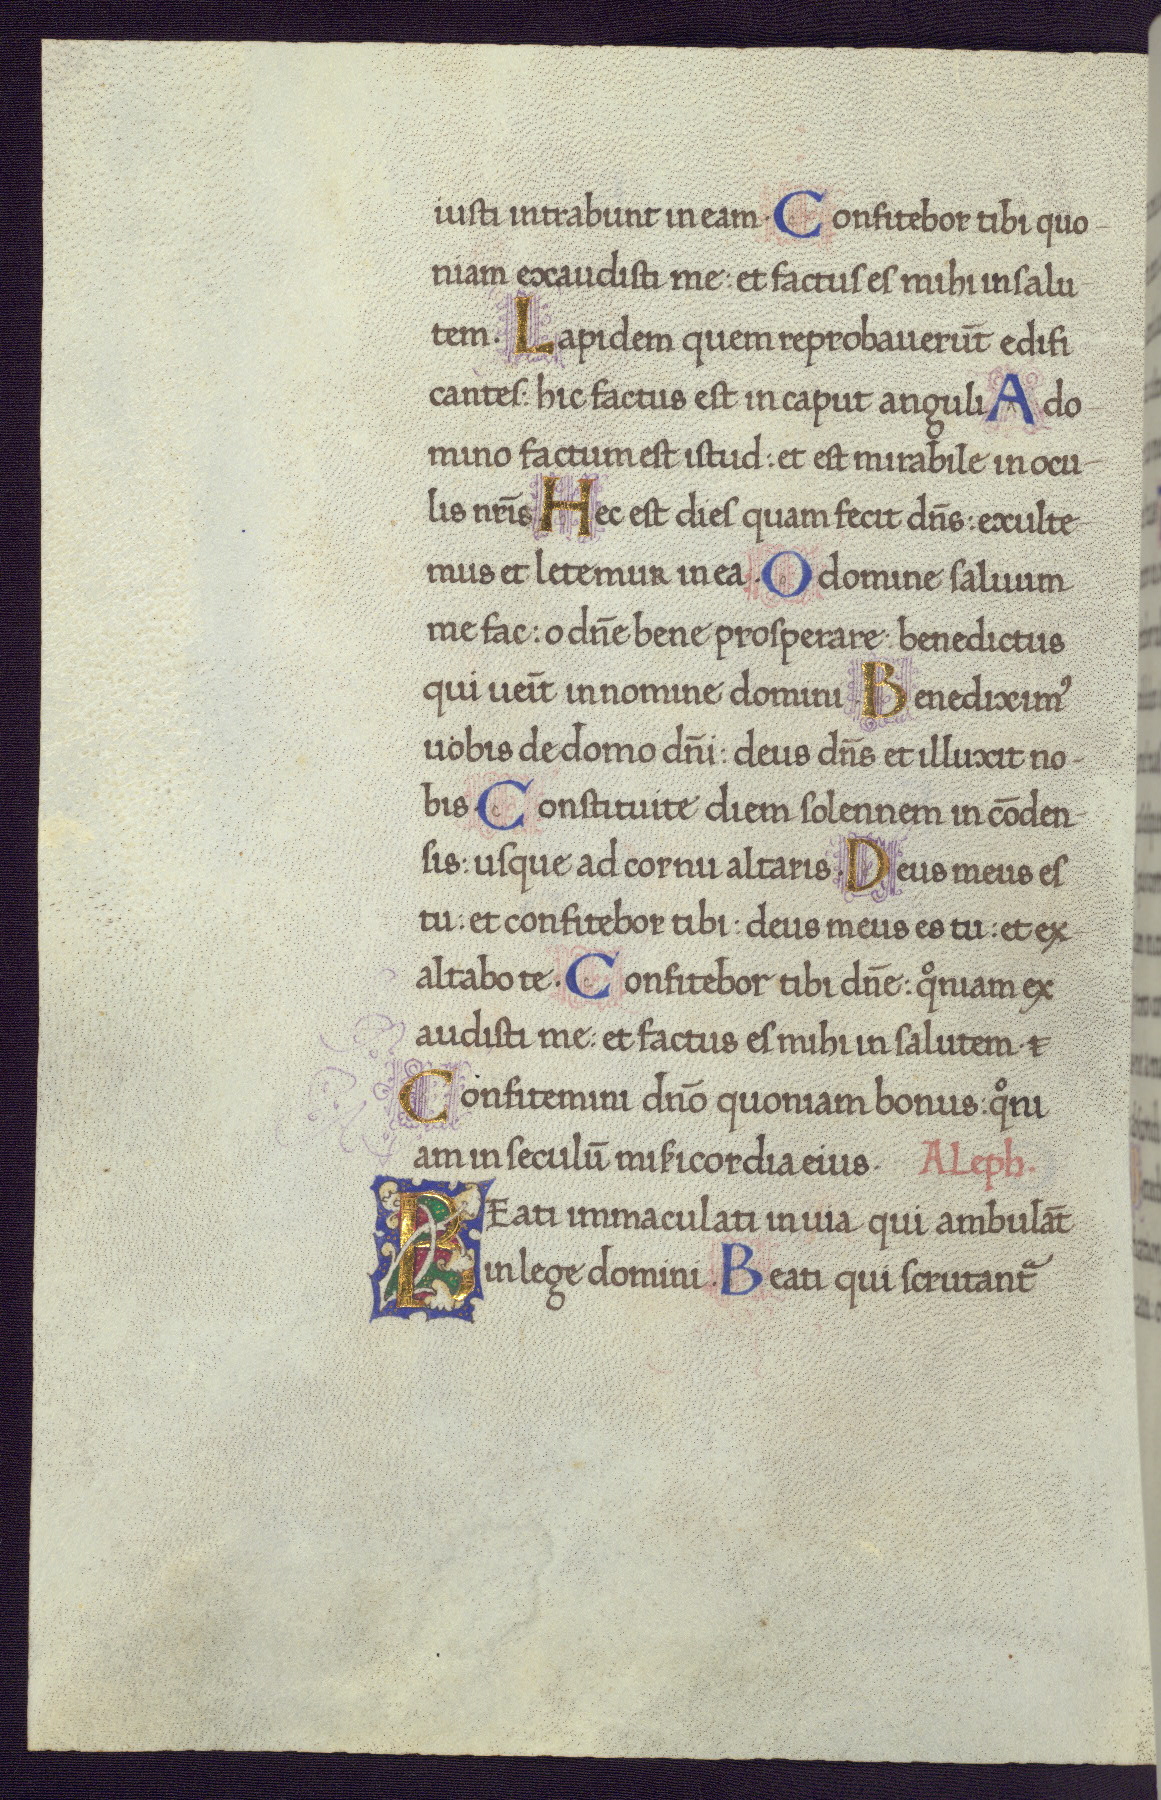 iusti intrabunt in eam. Confitebor tibi quo-
niam exaudisti me: et factus es mihi in salu-
tem. Lapidem quem reprobauerūt edifi
cantes: hic factus est in caput anguli A do-
mino factum est istud: et est mirabile in ocu-
lis nr̄is Hec est dies quam fecit dn̄s: exulte
mus et letemur in ea. O domine saluum
me fac: o dn̄e bene prosperare: benedictus
qui ueīt in nomine domini Benediximꝰ
uobis de domo dn̄i: deus dn̄s et illuxit no-
bis. Constituite diem solennem in cōden-
sis: usque ad cornu altaris. Deus meus es
tu: et confitebor tibi: deus meus es tu: et ex
altabo te. Confitebor tibi dn̄e: qͦniam ex
audisti me: et factus es mihi in salutem. t
Confitemini dn̄o quoniam bonus: qͦni
am in seculū mīẜicordia eius. Aleph.
BEati immaculati in uia qui ambulāt
in lege domini. Beati qui scrutantᷓ